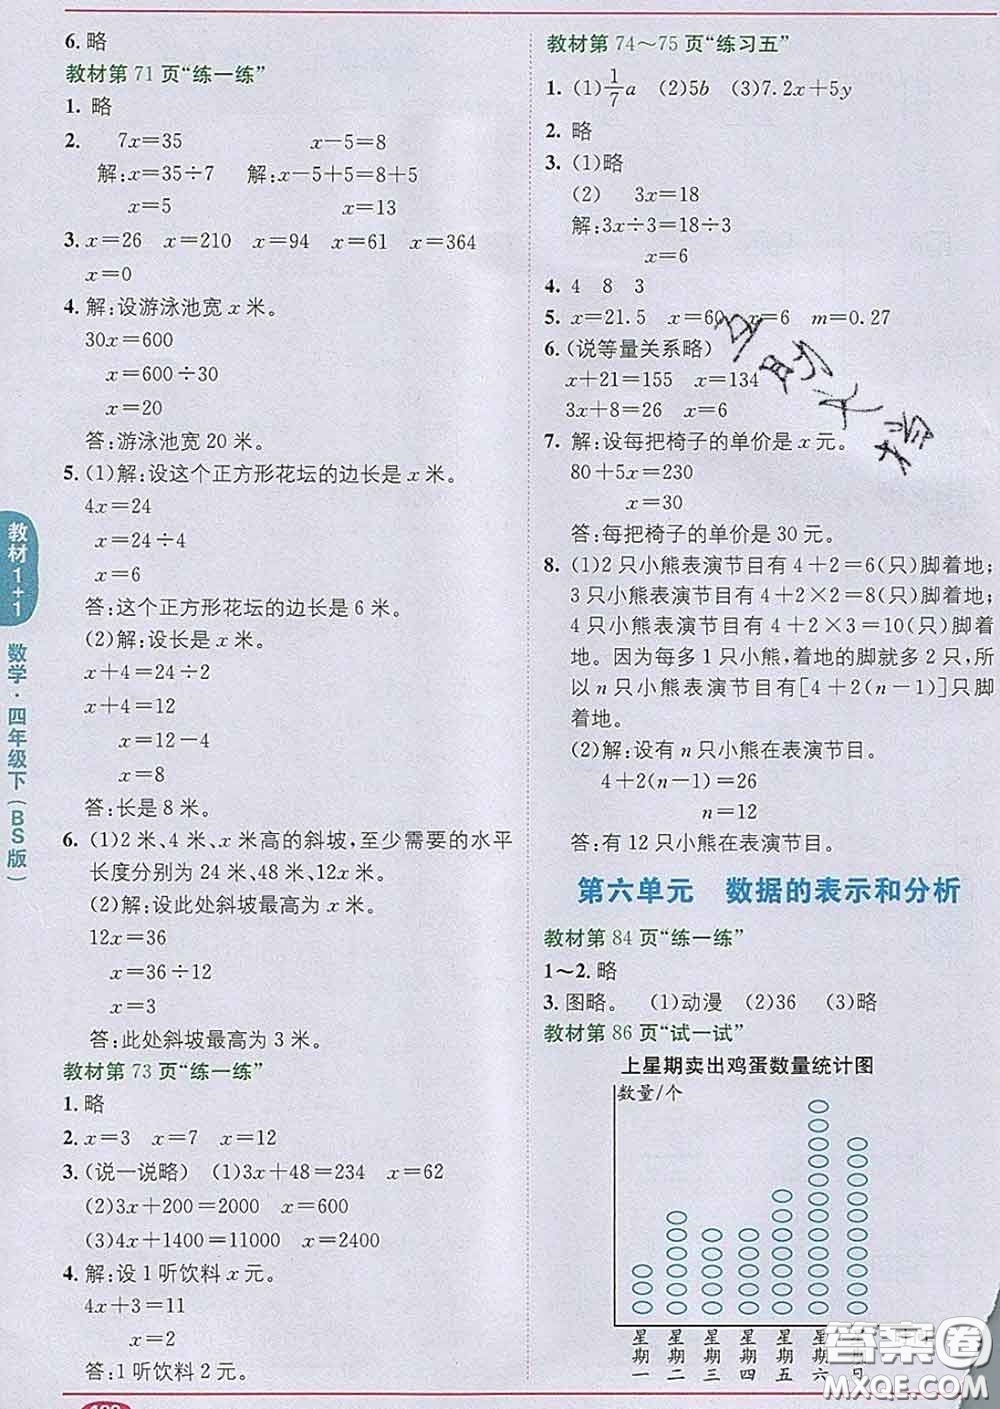 6. 略
教材第 71 页“练一练”
1. 略
2. 7x=35 x-5=8
解:x=35÷7 解:x-5+5=8+5
x=5 x=13
3. x=26 x=210 x=94 x=61 x=364
x=0
4. 解:设游泳池宽 x 米。
30x=600
x=600÷30
x=20
答:游泳池宽 20 米。
5. (1)解:设这个正方形花坛的边长是 x 米。
4x=24
x=24÷4
x=6
答:这个正方形花坛的边长是 6 米。
(2)解:设长是 x 米。
x+4=24÷2
x+4=12
x=12-4
x=8
答:长是 8 米。
6. (1)2 米、4 米、x 米高的斜坡,至少需要的水平
长度分别为 24 米、48 米、12x 米。
(2)解:设此处斜坡最高为 x 米。
12x=36
x=36÷12
x=3
答:此处斜坡最高为 3 米。
教材第 73 页“练一练”
1. 略
2. x=3 x=7 x=12
3. (说一说略) (1)3x+48=234 x=62
(2)3x+200=2000 x=600
(3)4x+1400=11000 x=2400
4. 解:设 1 听饮料 x 元。
4x+3=11
x=2
答:1 听饮料 2 元。
教材第 74～75 页“练习五”
1. (1)1/7a (2)5b (3)7.2x+5y
2. 略
3. (1)略
(2) 3x=18
解:3x÷3=18÷3
x=6
4. 4 8 3
5. x=21.5 x=60 x=6 m=0.27
6. (说等量关系略)
x+21=155 x=134
3x+8=26 x=6
7. 解:设每把椅子的单价是 x 元。
80+5x=230
x=30
答:每把椅子的单价是 30 元。
8. (1)2 只小熊表演节目有 4+2=6(只)脚着地;
3 只小熊表演节目有 4+2×2=8(只)脚着地;
4 只小熊表演节目有 4+2×3=10(只)脚着
地。因为每多 1 只小熊,着地的脚就多 2 只,所
以 n 只小熊表演节目有[4+2(n-1)]只脚
着地。
(2)解:设有 n 只小熊在表演节目。
4+2(n-1)=26
n=12
答:有 12 只小熊在表演节目。
第六单元 数据的表示和分析
教材第 84 页“练一练”
1～2. 略
3. 图略。 (1)动漫 (2)36 (3)略
教材第 86 页“试一试”
上星期卖出鸡蛋数量统计图
数量/个
星期一 星期二 星期三 星期四 星期五 星期六 星期日
教材1+1
数学·四年级下(BS版)
答案圈
MXQE.COM